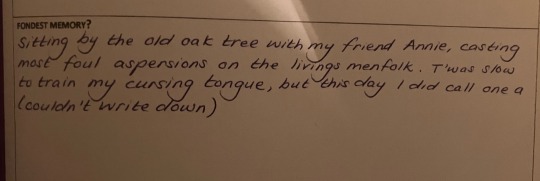 FONDEST MEMORY?
Sitting by the old oak tree with my friend Annie, casting
most foul aspersions on the livings menfolk. T'was slow
to train my cursing tongue, but this day I did call one a
(couldn't write down)